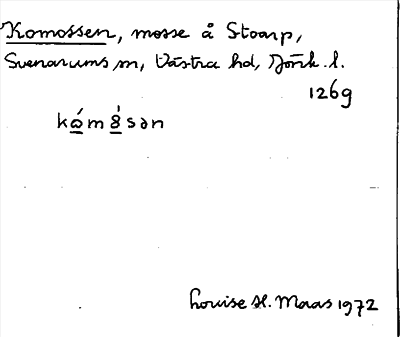 Komossen, mosse å Stoarp,
Svenarums sn, Västra hd, Jönk. l.
1269
kǿm8́sən
Louise H. Maas 1972